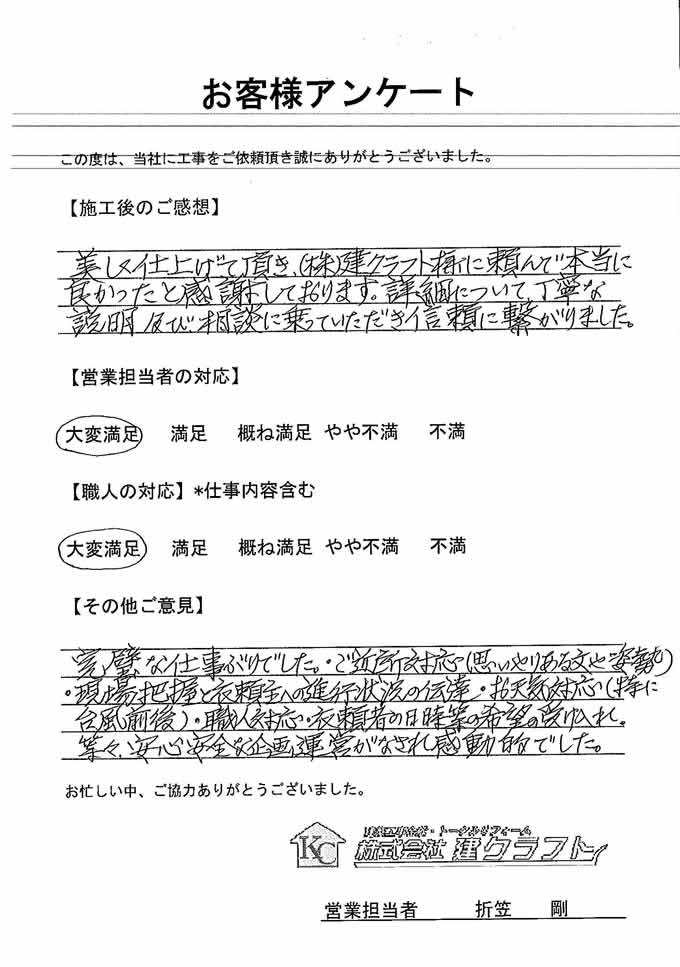 お客様アンケート
この度は、当社に工事をご依頼頂き誠にありがとうございました。
【施工後のご感想】
美しく仕上げて頂き、(株)建クラフト様に頼んで本当に
良かったと感謝しております。詳細について、丁寧な
説明及び相談に乗っていただき信頼に繋がりました。
【営業担当者の対応】
大変満足 満足 概ね満足 やや不満 不満
【職人の対応】*仕事内容含む
大変満足 満足 概ね満足 やや不満 不満
【その他ご意見】
完璧な仕事ぶりでした。・ご近所対応(思いやりある文や姿勢)
・現場把握と依頼主への進行状況の伝達・お天気対応(特に
台風前後)・職人対応・依頼者の日時等の希望の受け入れ。
等々、安心安全な企画運営がなされ感動的でした。
お忙しい中、ご協力ありがとうございました。
KC
トータルリフォーム
株式会社 建クラフト
営業担当者 折笠 剛